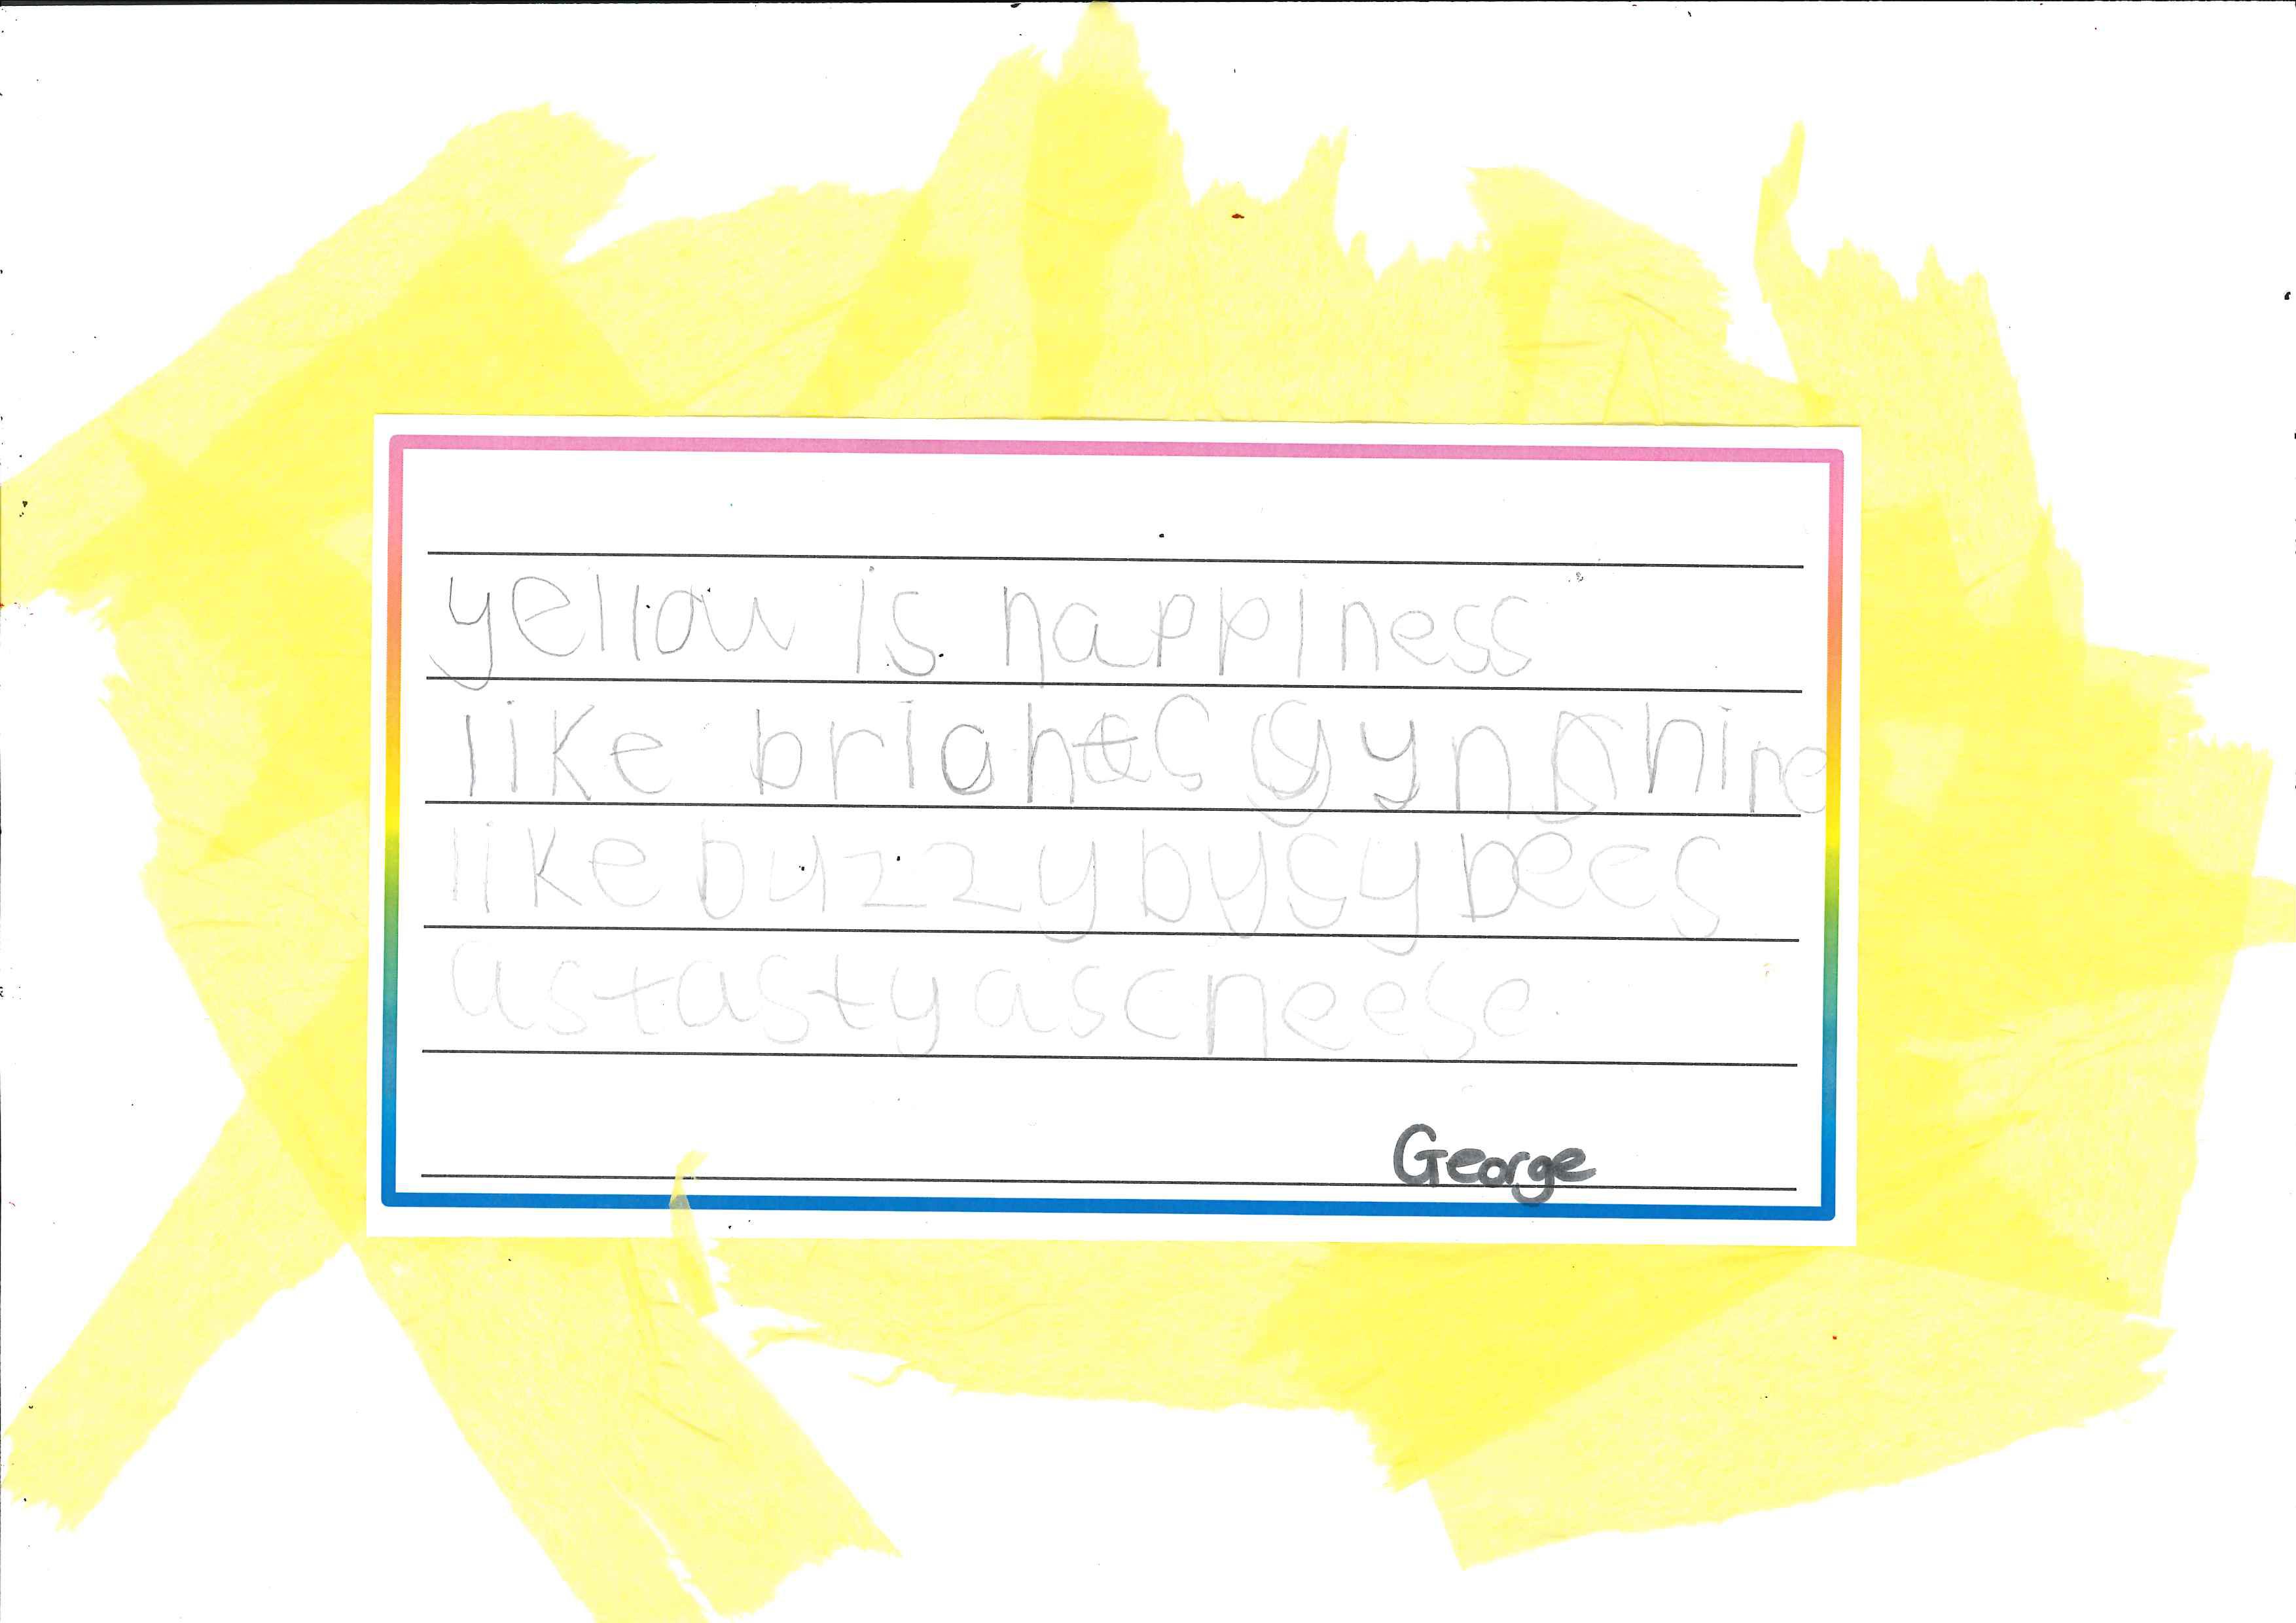 yellow is happiness
like brightes synshine
like buzzy busy bees
as tasty as cheese
George